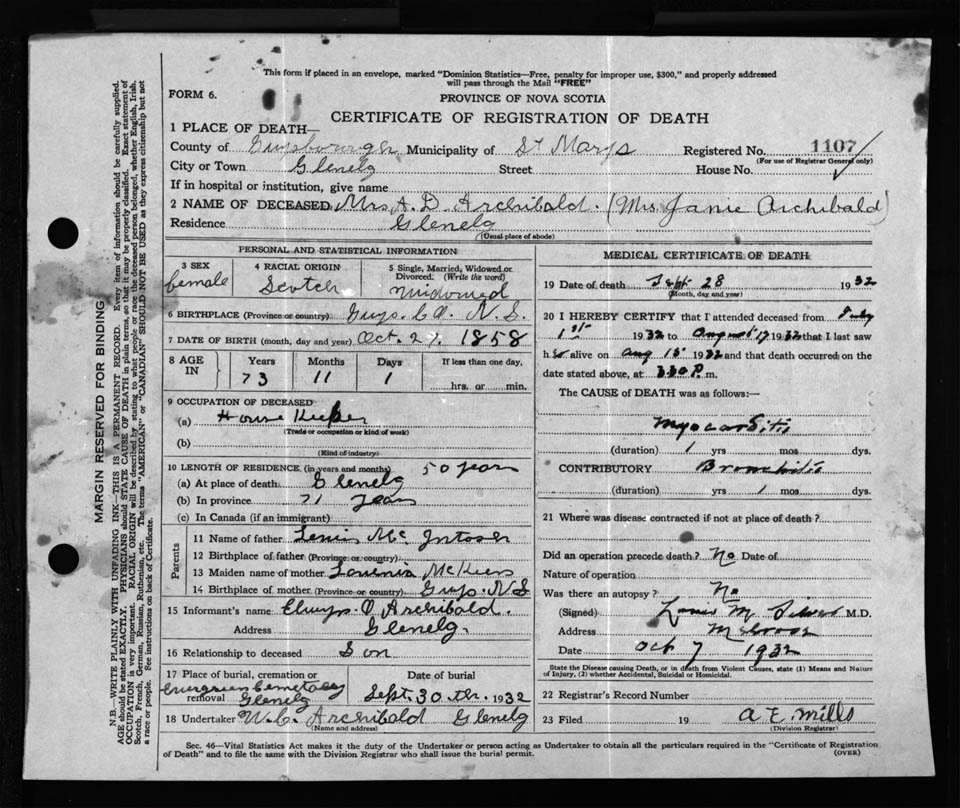 This form if placed in an envelope, marked "Dominion Statistics—Free, penalty for improper use, $300," and properly addressed
will pass through the Mail "FREE"
FORM 6.
PROVINCE OF NOVA SCOTIA
CERTIFICATE OF REGISTRATION OF DEATH
1 PLACE OF DEATH—
County of Guysborough Municipality of St Marys Registered No. 1107
(For use of Registrar General only)
City or Town Glenelg Street House No.
If in hospital or institution, give name
2 NAME OF DECEASED Mrs A. D. Archibald. (Mrs Janie Archibald)
Residence Glenelg
(Usual place of abode)
PERSONAL AND STATISTICAL INFORMATION
3 SEX
female
4 RACIAL ORIGIN
Scotch
5 Single, Married, Widowed or
Divorced. (Write the word)
Widowed
6 BIRTHPLACE (Province or country) Guys. Co. N. S.
7 DATE OF BIRTH (month, day and year) Oct. 27. 1858
8 AGE
IN
Years
73
Months
11
Days
1
If less than one day,
hrs. or min.
9 OCCUPATION OF DECEASED
(a) House Keeper
(Trade or occupation or kind of work)
(b)
(Kind of industry)
10 LENGTH OF RESIDENCE (in years and months) 50 years
(a) At place of death Glenelg
(b) In province 71 years
(c) In Canada (if an immigrant)
Parents
11 Name of father Mc Intosh
12 Birthplace of father (Province or country)
13 Maiden name of mother McKeen
14 Birthplace of mother (Province or country) Guys. N.S
15 Informant's name Archibald.
Address Glenelg.
16 Relationship to deceased Son
17 Place of burial, cremation or
removal Evergreen Cemetary
Glenelg
Date of burial
Sept. 30th. 1932
18 Undertaker W. C. Archibald Glenelg
(Name and address)
MEDICAL CERTIFICATE OF DEATH
19 Date of death Sept 28 1932
(Month, day and year)
20 I HEREBY CERTIFY that I attended deceased from July
1st 1932 to August 17 1932 that I last saw
her alive on Aug 15 1932 and that death occurred on
date stated above, at P. m.
The CAUSE of DEATH was as follows:—
Myocarditis
(duration) 1 yrs mos dys.
CONTRIBUTORY Bronchitis
(duration) yrs 1 mos dys.
21 Where was disease contracted if not at place of death?
Did an operation precede death? No Date of
Nature of operation
Was there an autopsy? No
(Signed) M. M.D.
Address Melrose
Date Oct 7 1932
State the Disease causing Death, or in death from Violent Causes, state (1) Means and Nature
of Injury, (2) whether Accidental, Suicidal or Homicidal.
22 Registrar's Record Number
23 Filed 19 A E. Mills
(Division Registrar)
Sec. 46—Vital Statistics Act makes it the duty of the Undertaker or person acting as Undertaker to obtain all the particulars required in the "Certificate of Registration
of Death" and to file the same with the Division Registrar who shall issue the burial permit.
(OVER)
MARGIN RESERVED FOR BINDING
N.B.—WRITE PLAINLY WITH UNFADING INK—THIS IS A PERMANENT RECORD. Every item of information should be carefully supplied.
AGE should be stated EXACTLY. PHYSICIANS should STATE CAUSE OF DEATH in plain terms, so that it may be properly classified. Exact statement of
OCCUPATION is very important. RACIAL ORIGIN will be described by stating to what people or race the deceased person belonged, whether English, Irish,
Scotch, French, German, Russian, Ruthenian, etc. The terms "AMERICAN" or "CANADIAN" SHOULD NOT BE USED as they express citizenship but not
a race or people. See instructions on back of Certificate.